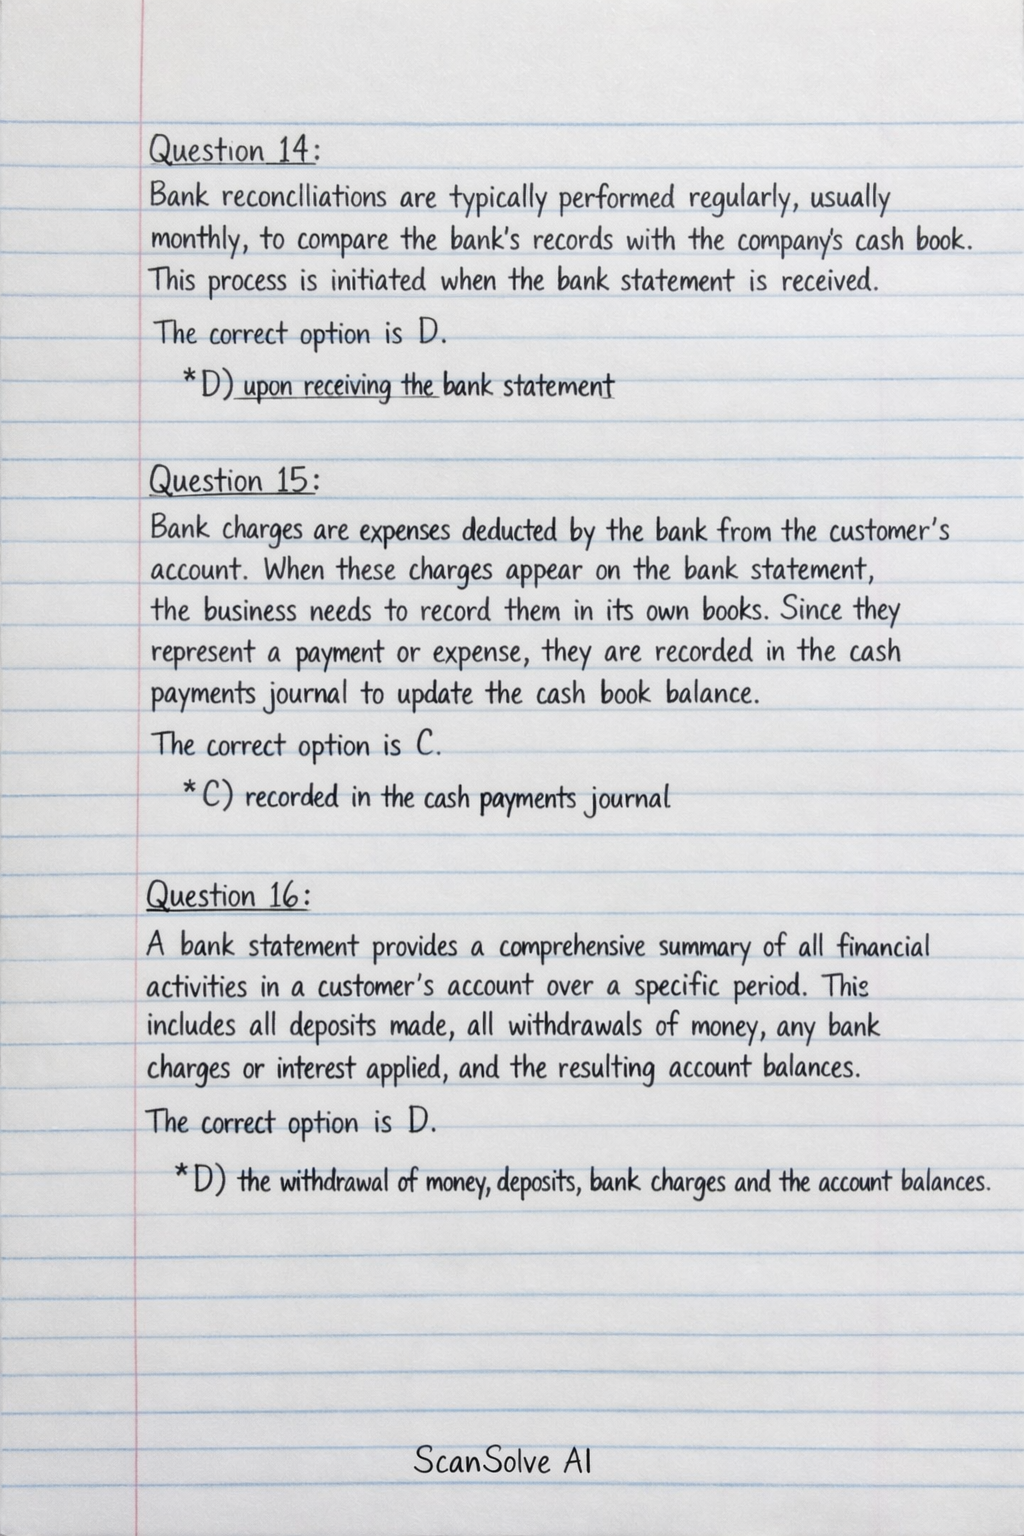 Question 14:
Bank reconclliations are typically performed regularly, usually
monthly, to compare the bank's records with the company's cash book.
This process is initiated when the bank statement is received.
The correct option is D.
*D) upon receiving the bank statement
Question 15:
Bank charges are expenses deducted by the bank from the customer's
account. When these charges appear on the bank statement,
the business needs to record them in its own books. Since they
represent a payment or expense, they are recorded in the cash
payments journal to update the cash book balance.
The correct option is C.
*C) recorded in the cash payments journal
Question 16:
A bank statement provides a comprehensive summary of all financial
activities in a customer's account over a specific period. This
includes all deposits made, all withdrawals of money, any bank
charges or interest applied, and the resulting account balances.
The correct option is D.
*D) the withdrawal of money, deposits, bank charges and the account balances.
ScanSolve AI